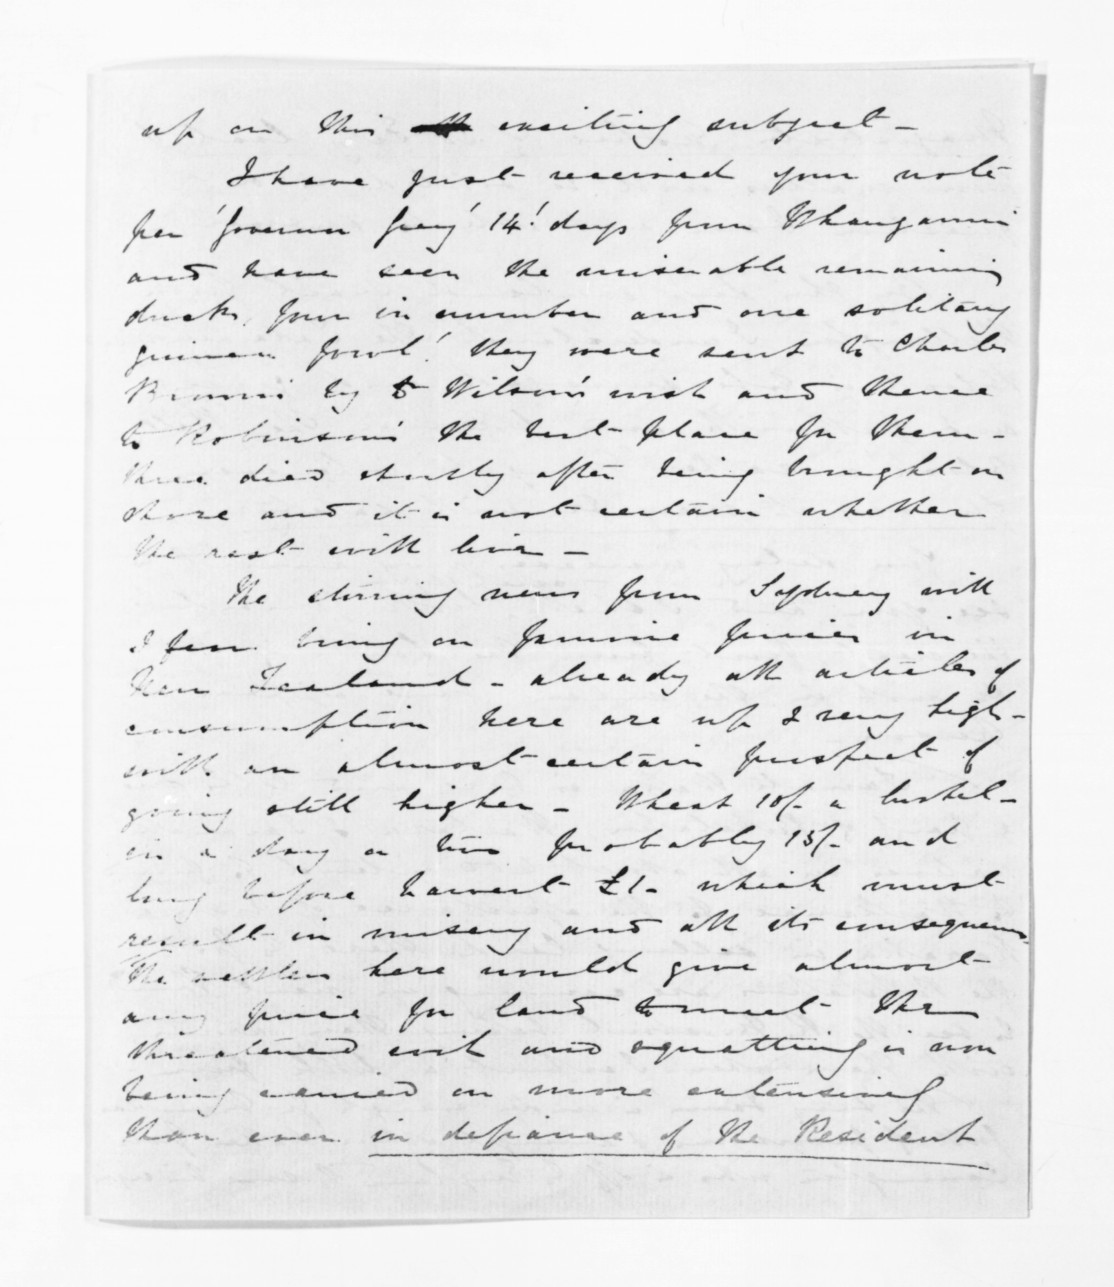 up on this exciting subject -
I have just received your note
per 'Governor Grey' 14! days from Whanganui
and have seen the miserable remaining
ducks, four in number and one solitary
guinea fowl! they were sent to Charles
Brown's by Dr Wilson's wish and thence
to Robinson's the best place for them -
three died shortly after being brought on
shore and it is not certain whether
the rest will live -
The stirring news from Sydney will
I fear bring on famine prices in
New Zealand - already all articles of
consumption here are up & very high -
with an almost certain prospect of
going still higher - Wheat 10/- a bushel -
in a day or two probably 15/- and
long before harvest £1 - which must
result in misery and all its consequences
The settlers here would give almost
any price for land to meet the
threatened evil and squatting is now
being carried on more extensively
than ever in defiance of the Resident